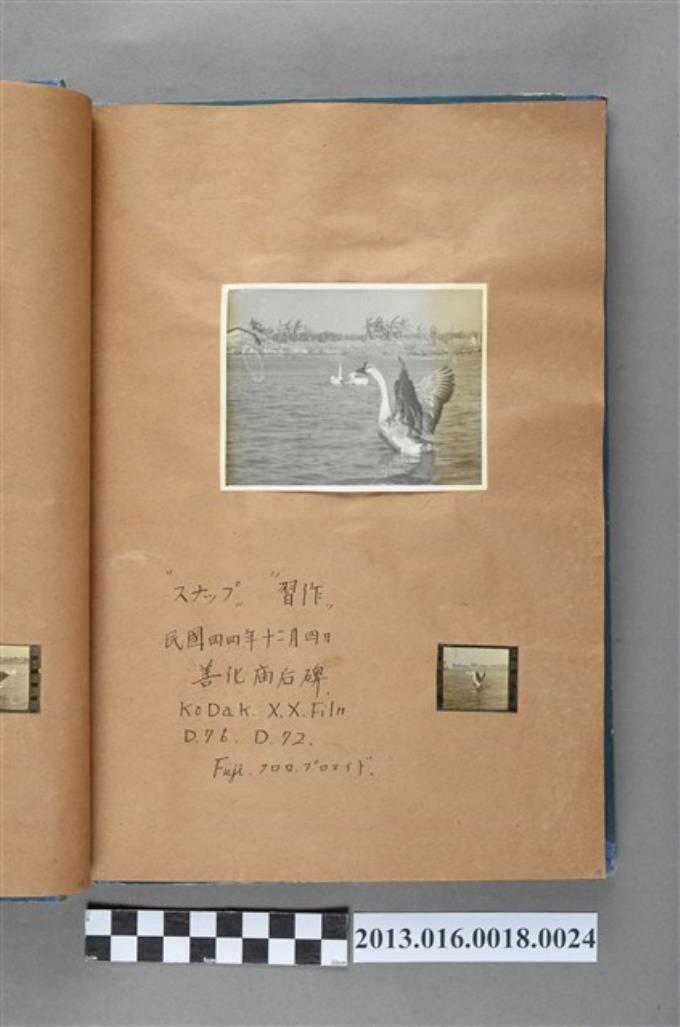 "スナップ" "習作"
民國四四年十二月四日
善化庙后碑.
KoDak. X.X. Film
D.76. D.72.
Fuji. クロロ.ブロマイド.
2013.016.0018.0024